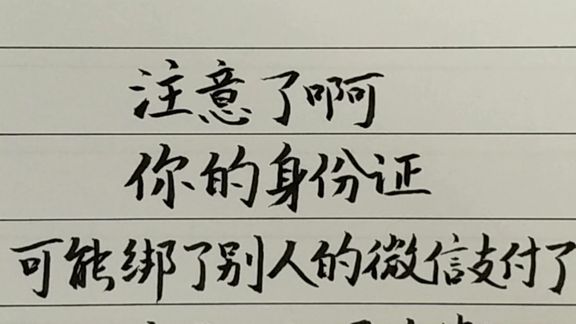 注意了啊
你的身份证
可能绑了别人的微信支付了